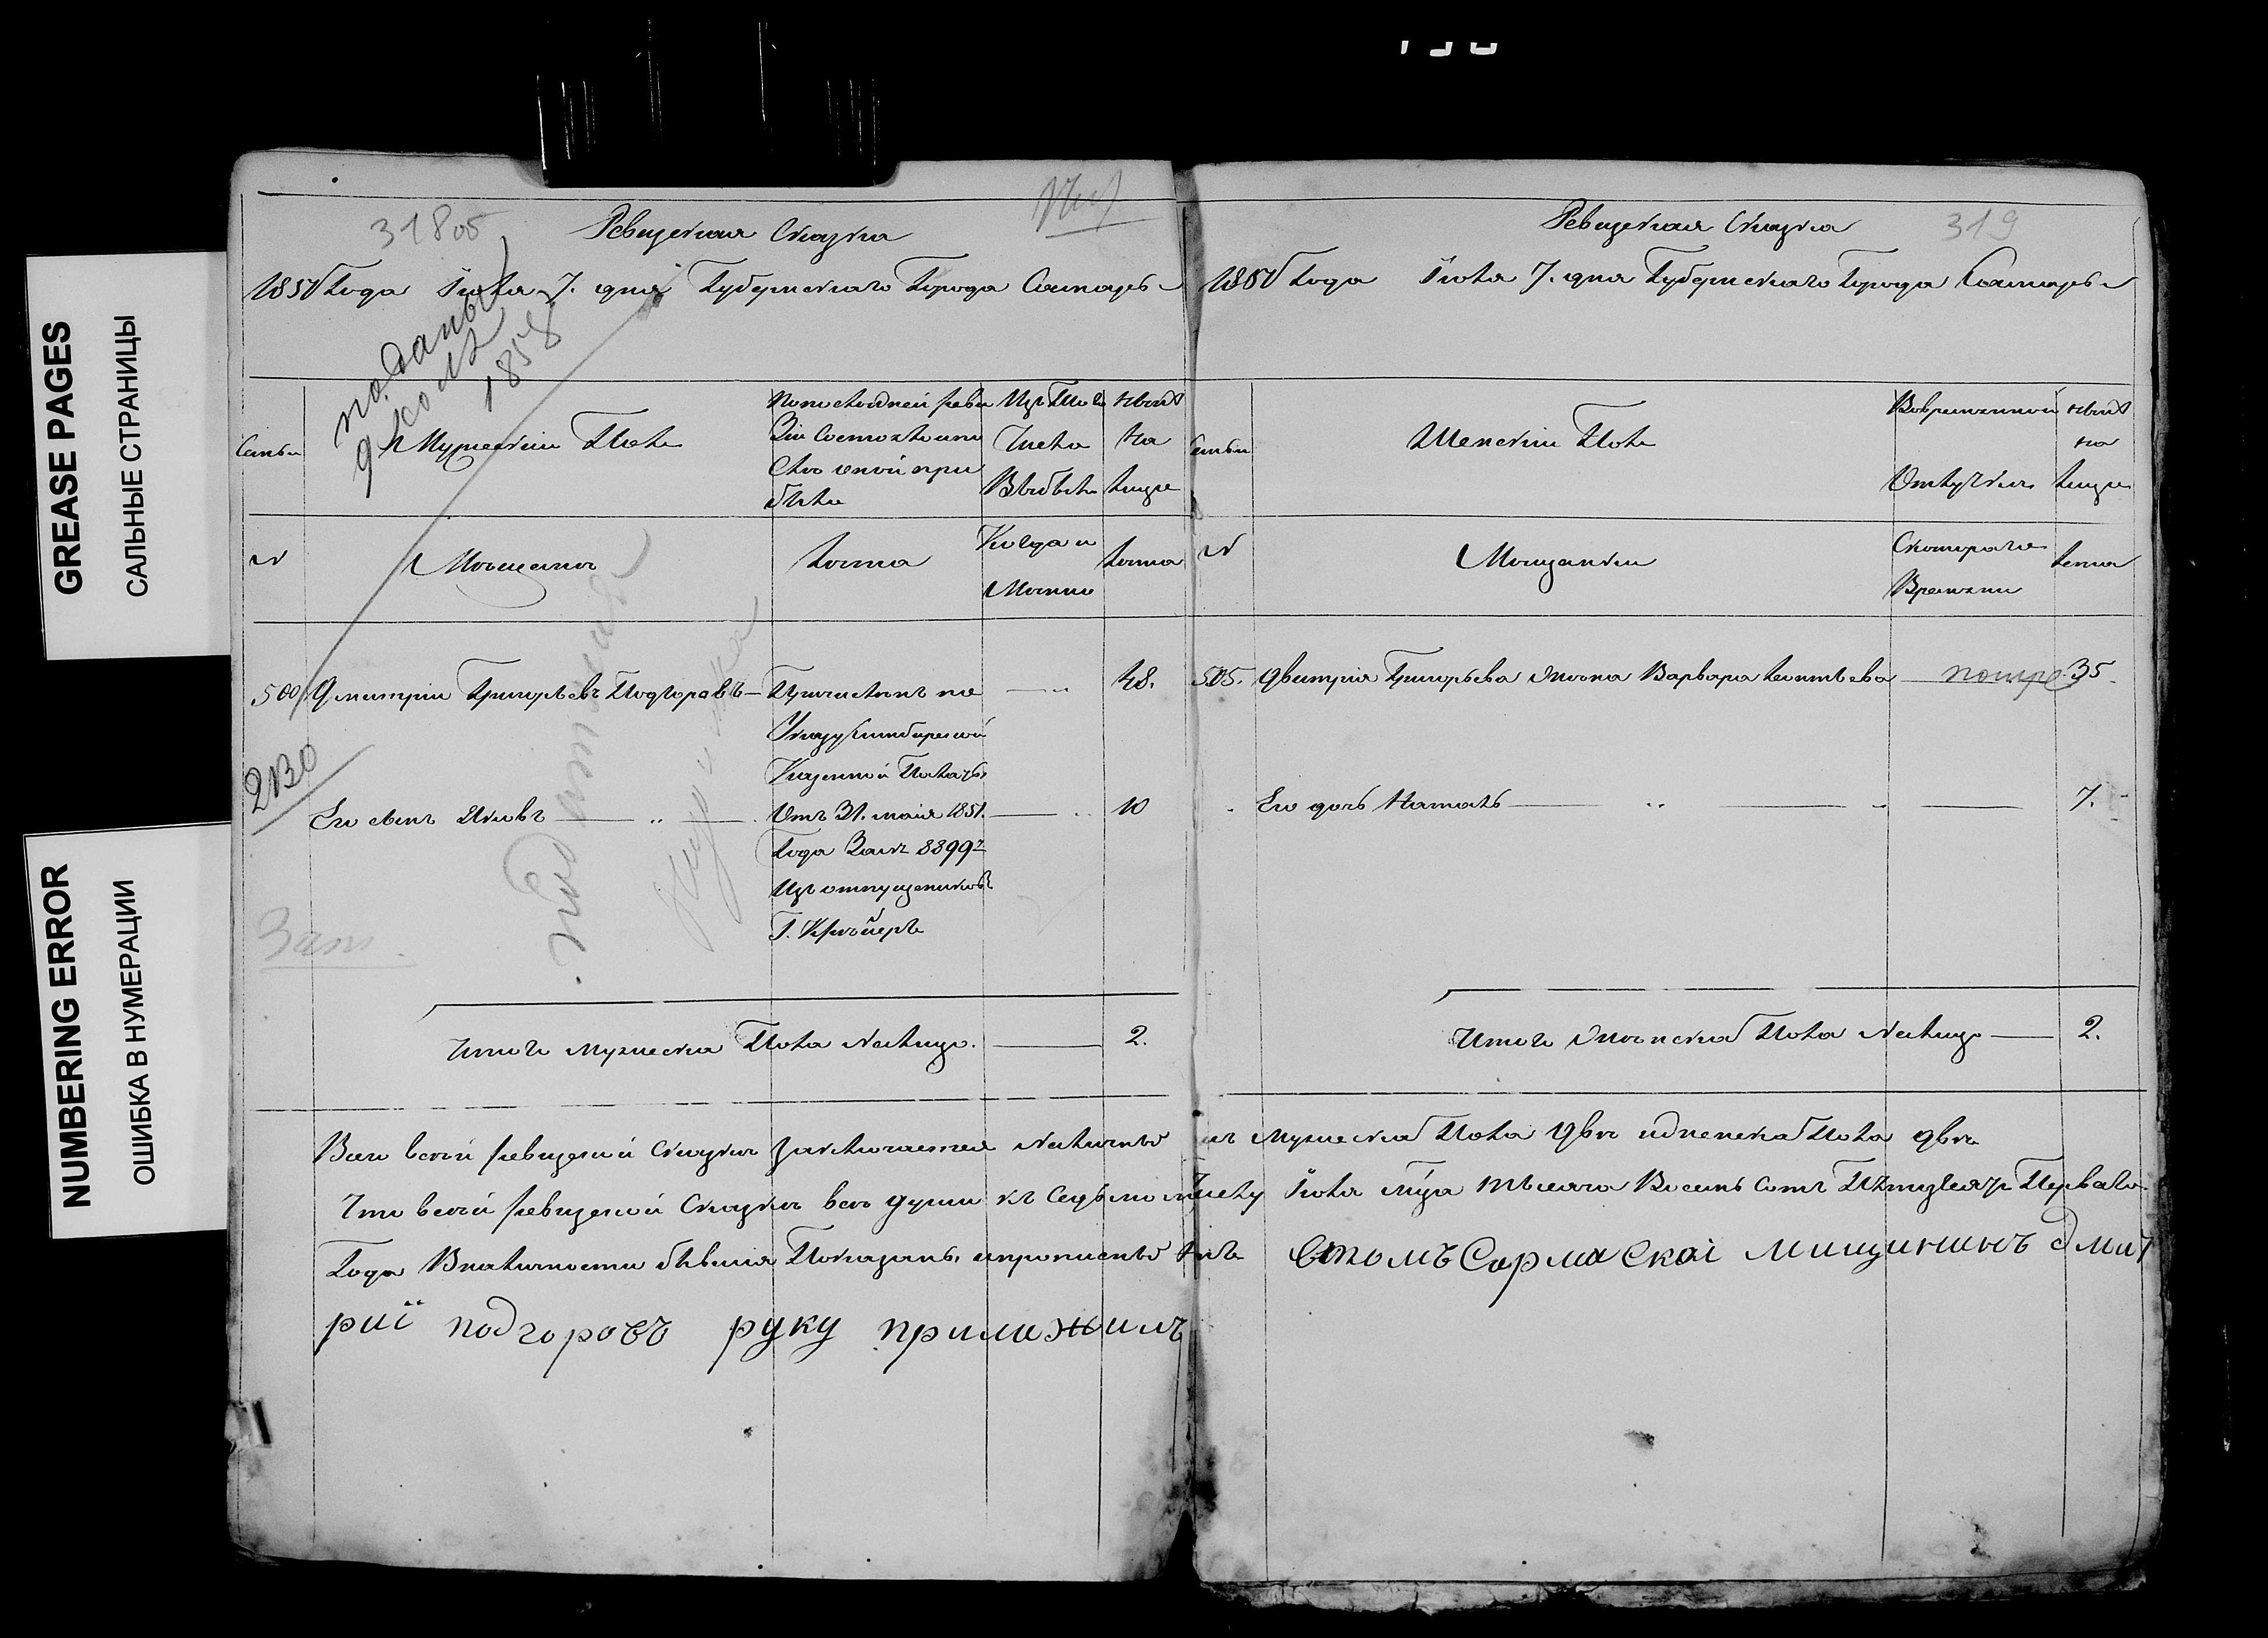 GREASE PAGES
САЛЬНЫЕ СТРАНИЦЫ
NUMBERING ERROR
ОШИБКА В НУМЕРАЦИИ
318об
Ревизская Сказка
1851 Года Июля 7. дня Губернскаго Города Самары
поданы
9 1858
Семьи
Мужеский Полъ
По последней реви
зіи состояло или
после оной при
было
Изъ того
числа
выбыло
Ныне
на
лицо
№
Мещане
Лета
Когда и
Лета
500 Дмитрий Григорьевъ Подгоровъ
Причисленъ по
Указу Симбирской
Казенной Палаты
Отъ 31. мая 1851.
Года За № 8899
Изъ отпущенниковъ
Г.
48.
2130
Его сынъ Яковъ
10
Зап.
Итого мужеска Пола Налицо. 2.
Ревизская Сказка
319
1851 Года Июля 7. дня Губернскаго Города Самары
Семьи
Женский Полъ
Во временной
Отлучке
Ныне
на
лицо
№
Мещанки
Времени
Лета
505. Дмитрия Григорьева жена Варвара Леонтьева 35.
Его дочь Наталь 7.
Итого Женска Пола Налицо 2.
Во всей ревизской Сказке заключается Налицо мужеска Пола две и женска Пола две
Что в сей ревизской Сказке все души къ Седьмому числу Июля м-ца тысяча Восемь Сотъ Пятьдесятъ Перваго
Года В наличности бывшия Показаны и прописныхъ нетъ
в томъ Самаскаі мищининъ дмит
риї подгоровъ руку прилажилъ